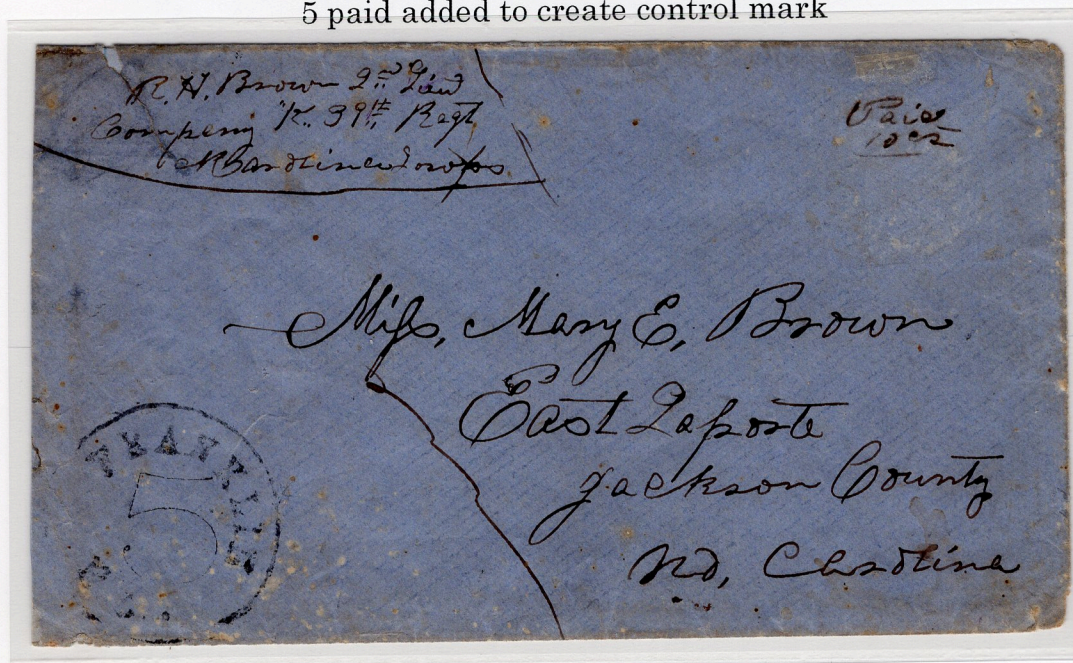 5 paid added to create control mark
R. H. Brown 2nd Lieu
Company K. 39th Regt
N Carolina Troops
Paid
10 cts
Miss, Mary E, Brown
East Laporte
Jackson County
No, Carolina
5